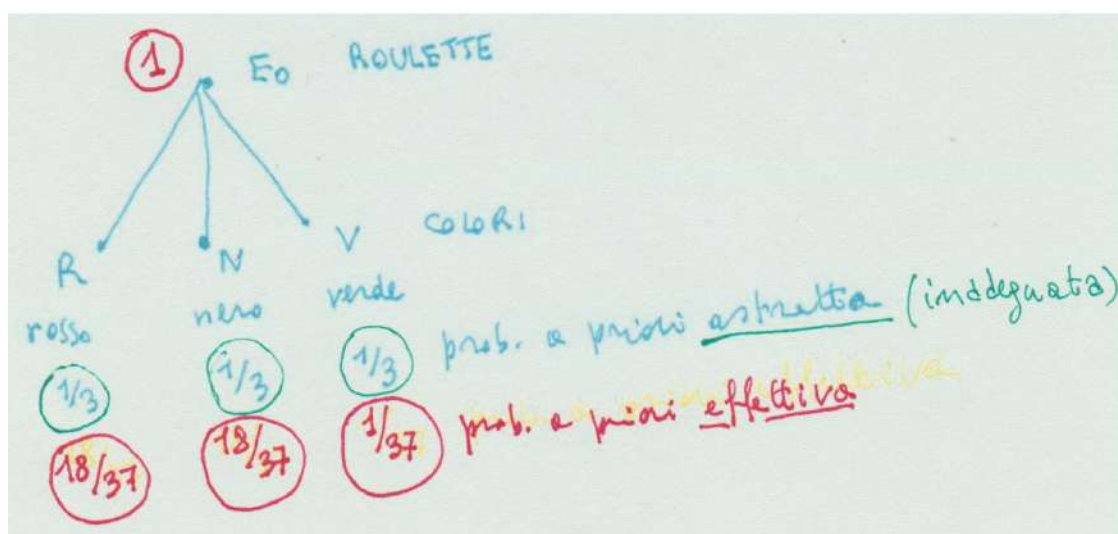 1 E0 ROULETTE
R N V COLORI
rosso nero verde
1/3 1/3 1/3 prob. a priori astratta (inadeguata)
18/37 18/37 1/37 prob. a priori effettiva